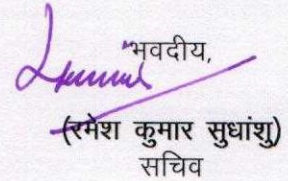 भवदीय,
(रमेश कुमार सुधांशु)
सचिव